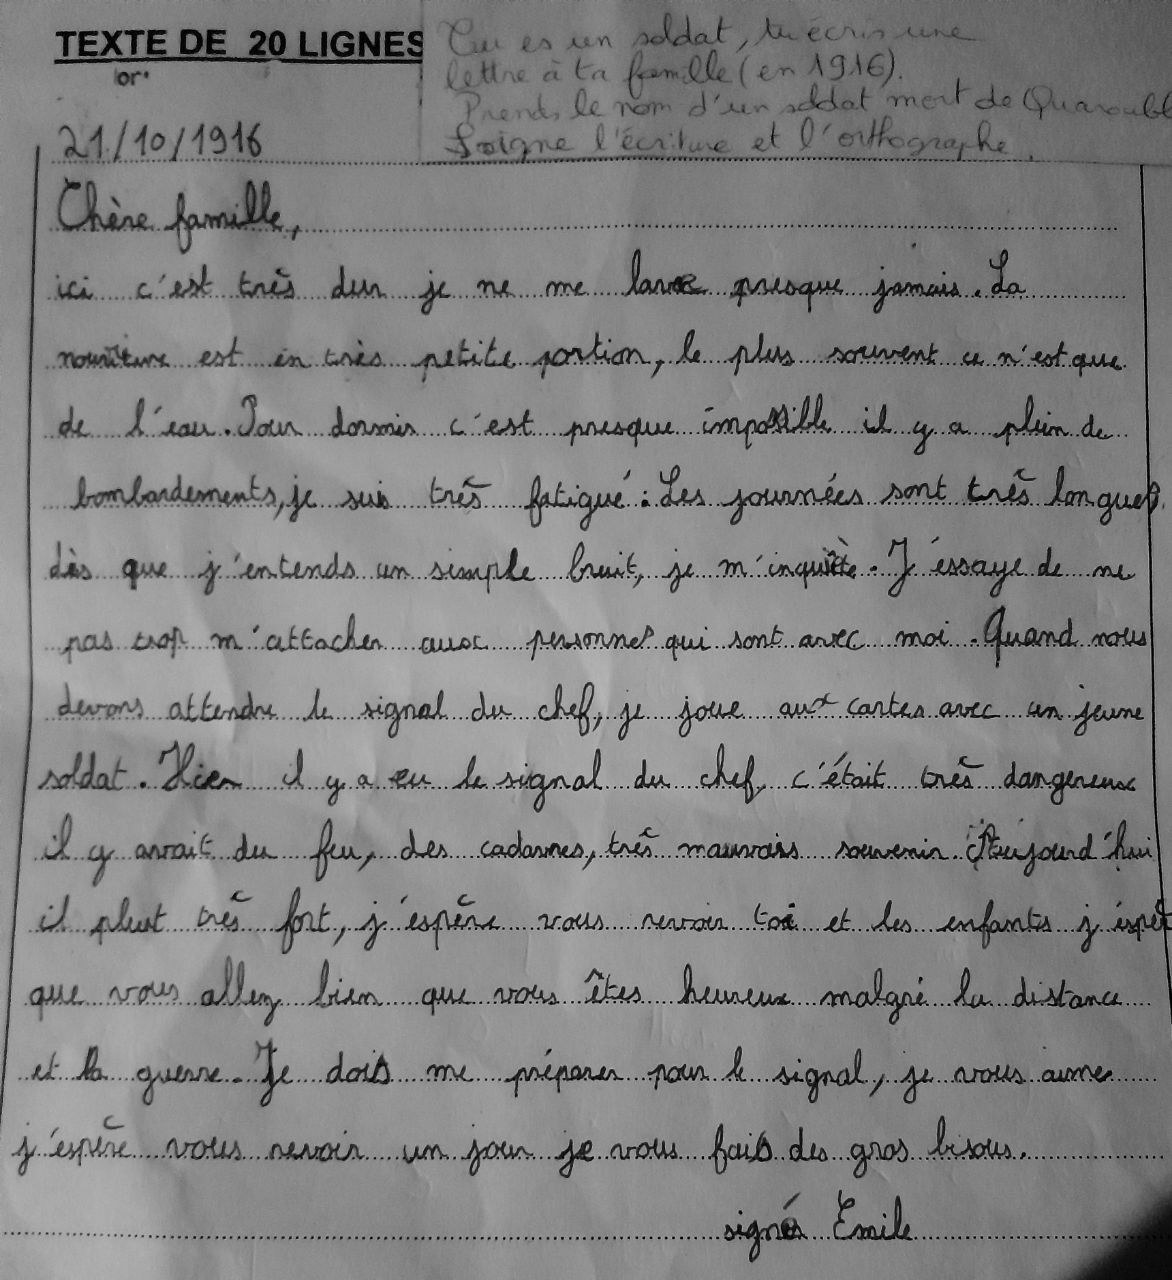 TEXTE DE 20 LIGNES
or.
Tu es un soldat, tu écris une
lettre à ta famille (en 1916).
Prends le nom d'un soldat mort de Quaroubl
Soigne l'écriture et l'orthographe.
21/10/1916
Chère famille,
ici c'est très dur je ne me lave presque jamais. La
nourriture est en très petite portion, le plus souvent ce n'est que
de l'eau. Pour dormir c'est presque impossible il y a plein de
bombardements, je suis très fatigué. Les journées sont très longues,
dès que j'entends un simple bruit, je m'inquiète. J'éssaye de ne
pas trop m'attacher aux personnes qui sont avec moi. Quand nous
devons attendre le signal du chef, je joue aux cartes avec un jeune
soldat. Hier il y a eu le signal du chef, c'était très dangereux
il y avait du feu, des cadavres, très mauvais souvenir. Aujourd'hui
il pleut très fort, j'espère vous revoir toi et les enfants j'espèr
que vous allez bien que vous êtes heureux malgré la distance
et la guerre. Je dois me préparer pour le signal, je vous aime
j'espère vous revoir un jour je vous fais des gros bisous.
signé Emile